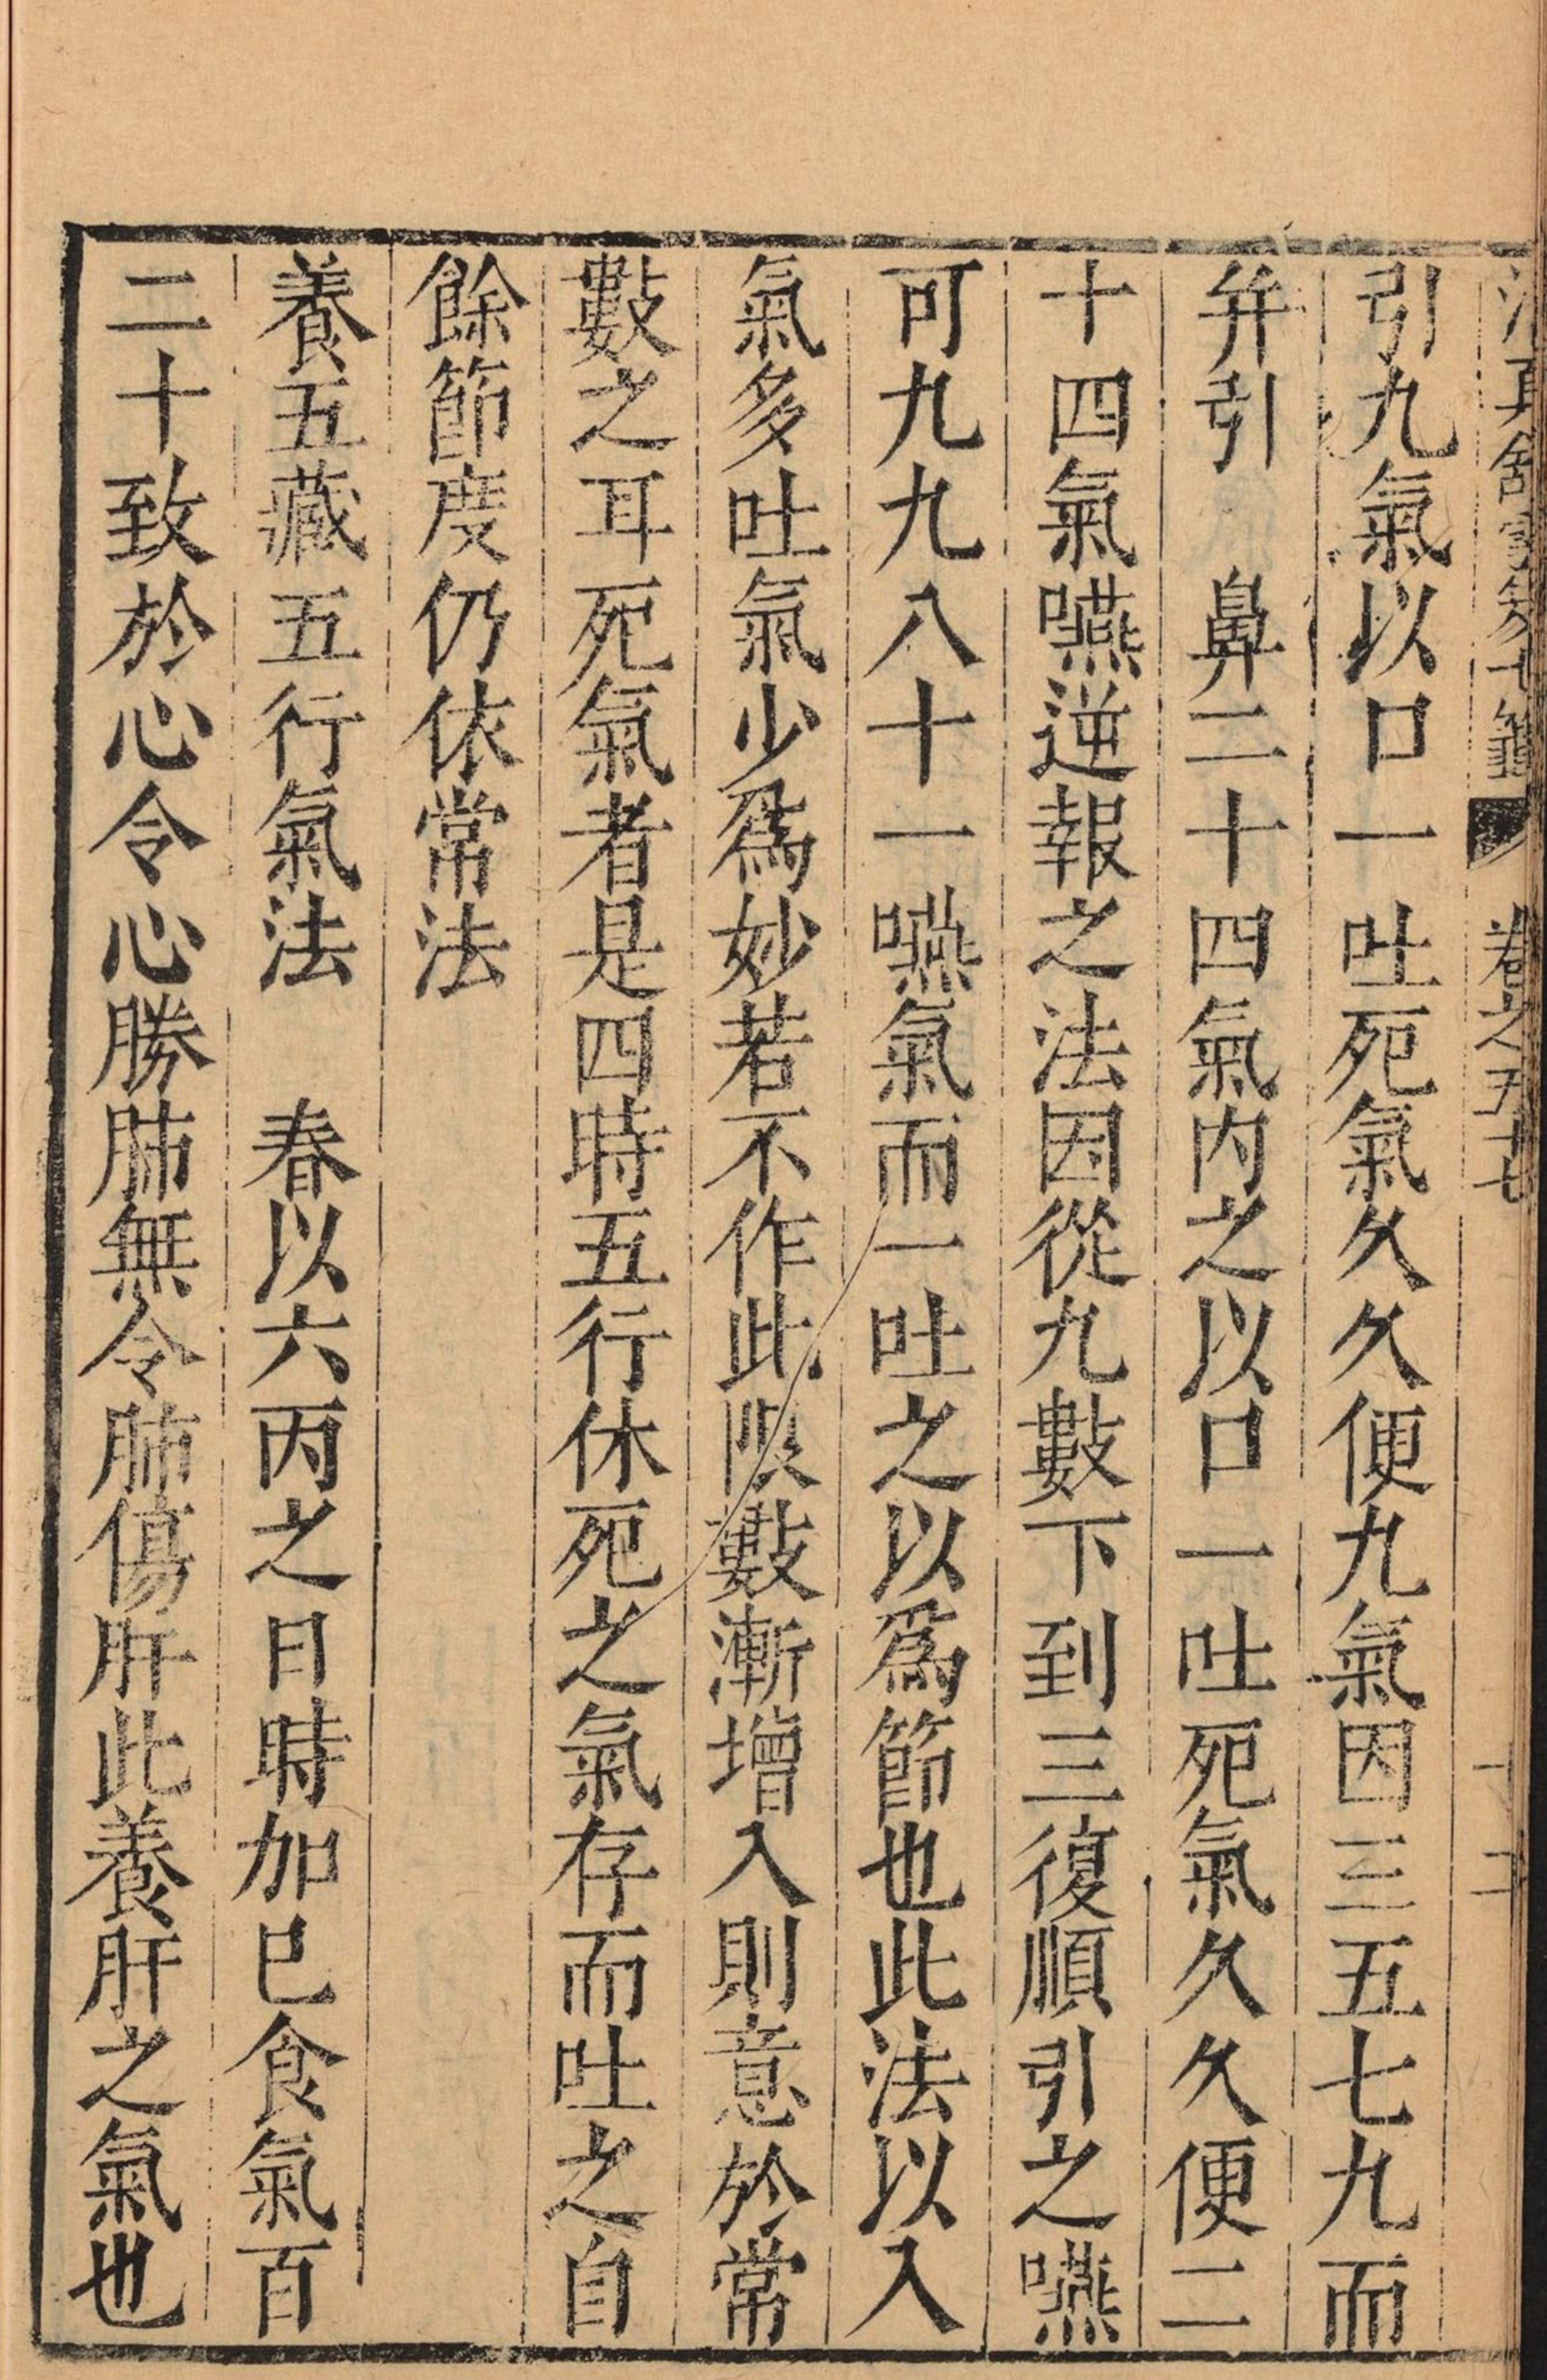 引九氣以口一吐死氣久久便九氣因三五七九而
弁引　鼻二十四氣内之以口一吐死氣久久便二
十四氣嚥逆報之法因從九數下到三復順引之嚥
可九九八十一嚥氣而一吐之以爲節也此法以入
氣多吐氣少爲妙若不作此限數漸增入則意於常
數之耳死氣者是四時五行休死之氣存而吐之自
餘節度仍依常法
養五藏五行氣法　春以六丙之日時加巳食氣百
二十致於心令心勝肺無令肺傷肝此養肝之氣也
卷之五十七
十二